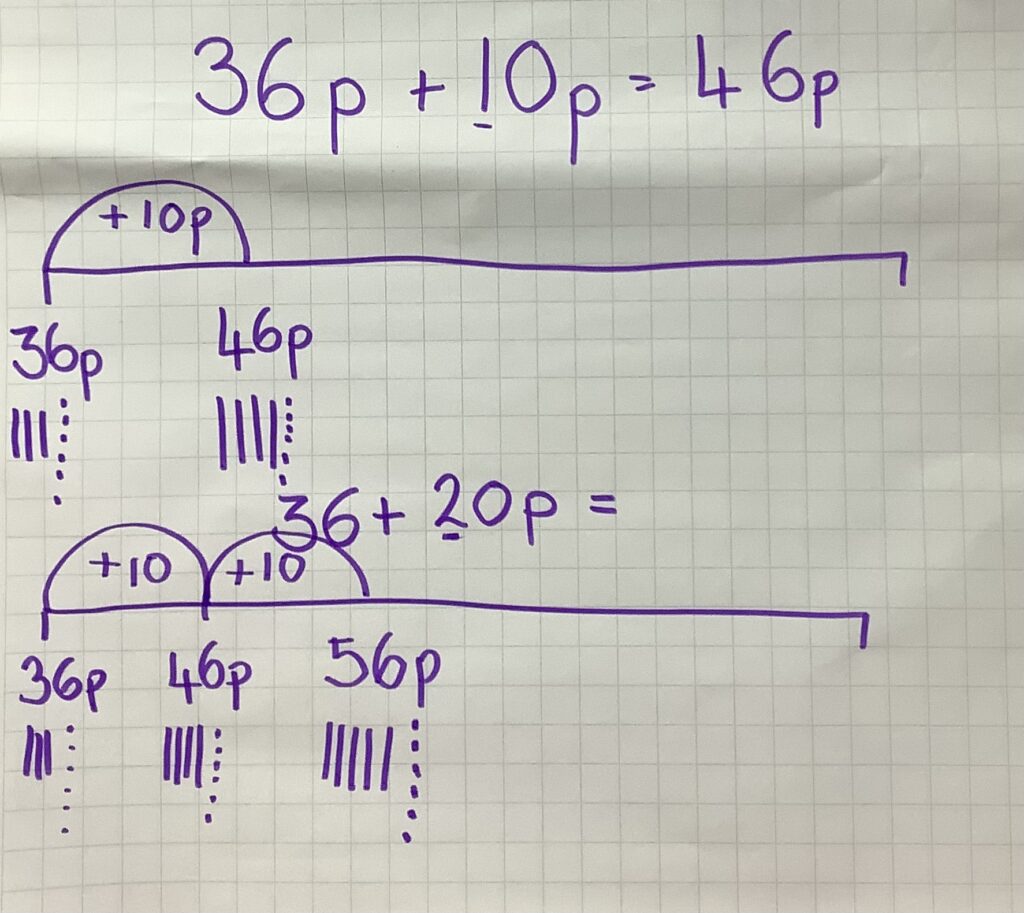 36p + 10p = 46p
+10p
36p 46p
36 + 20p =
+10 +10
36p 46p 56p